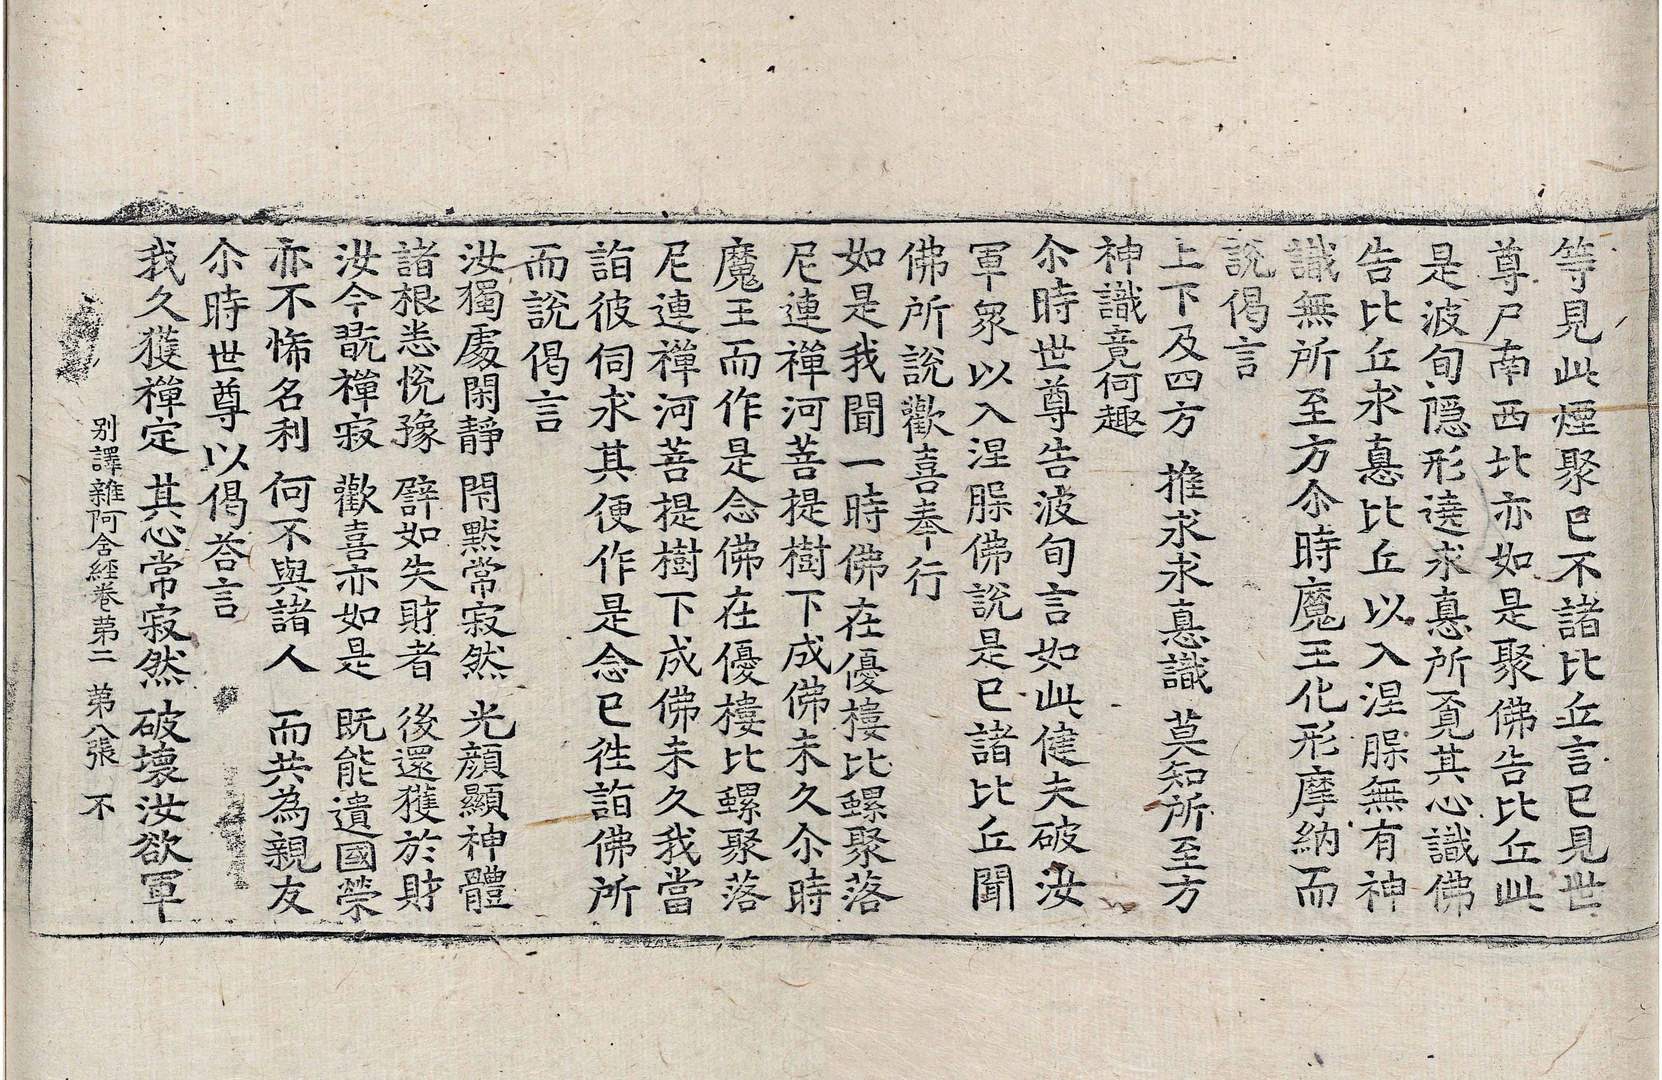 等見此煙聚已不諸比丘言已見世
尊尸南西北亦如是聚佛告比丘此
是波旬隱形遶求惪所覔其心識佛
告比丘求惪比丘以入涅膎無有神
識無所至方尒時魔王化形摩納而
說偈言
上下及四方 推求求惪識 莫知所至方
神識竟何趣
尒時世尊告波旬言如此健夫破汝
軍衆以入涅膎佛說是已諸比丘聞
佛所說歡喜奉行
如是我聞一時佛在優樓比螺聚落
尼連禪河菩提樹下成佛未久尒時
魔王而作是念佛在優樓比螺聚落
尼連禪河菩提樹下成佛未久我當
詣彼伺求其便作是念已徃詣佛所
而說偈言
汝獨處閑靜 閇默常寂然 光顔顯神體
諸根悉悅豫 辟如失財者 後還獲於財
汝今翫禪寂 歡喜亦如是 既能遺國榮
亦不悕名利 何不與諸人 而共為親友
尒時世尊以偈荅言
我久獲禪定 其心常寂然 破壞汝欲軍
別譯雜阿含經卷苐二 苐八張 不